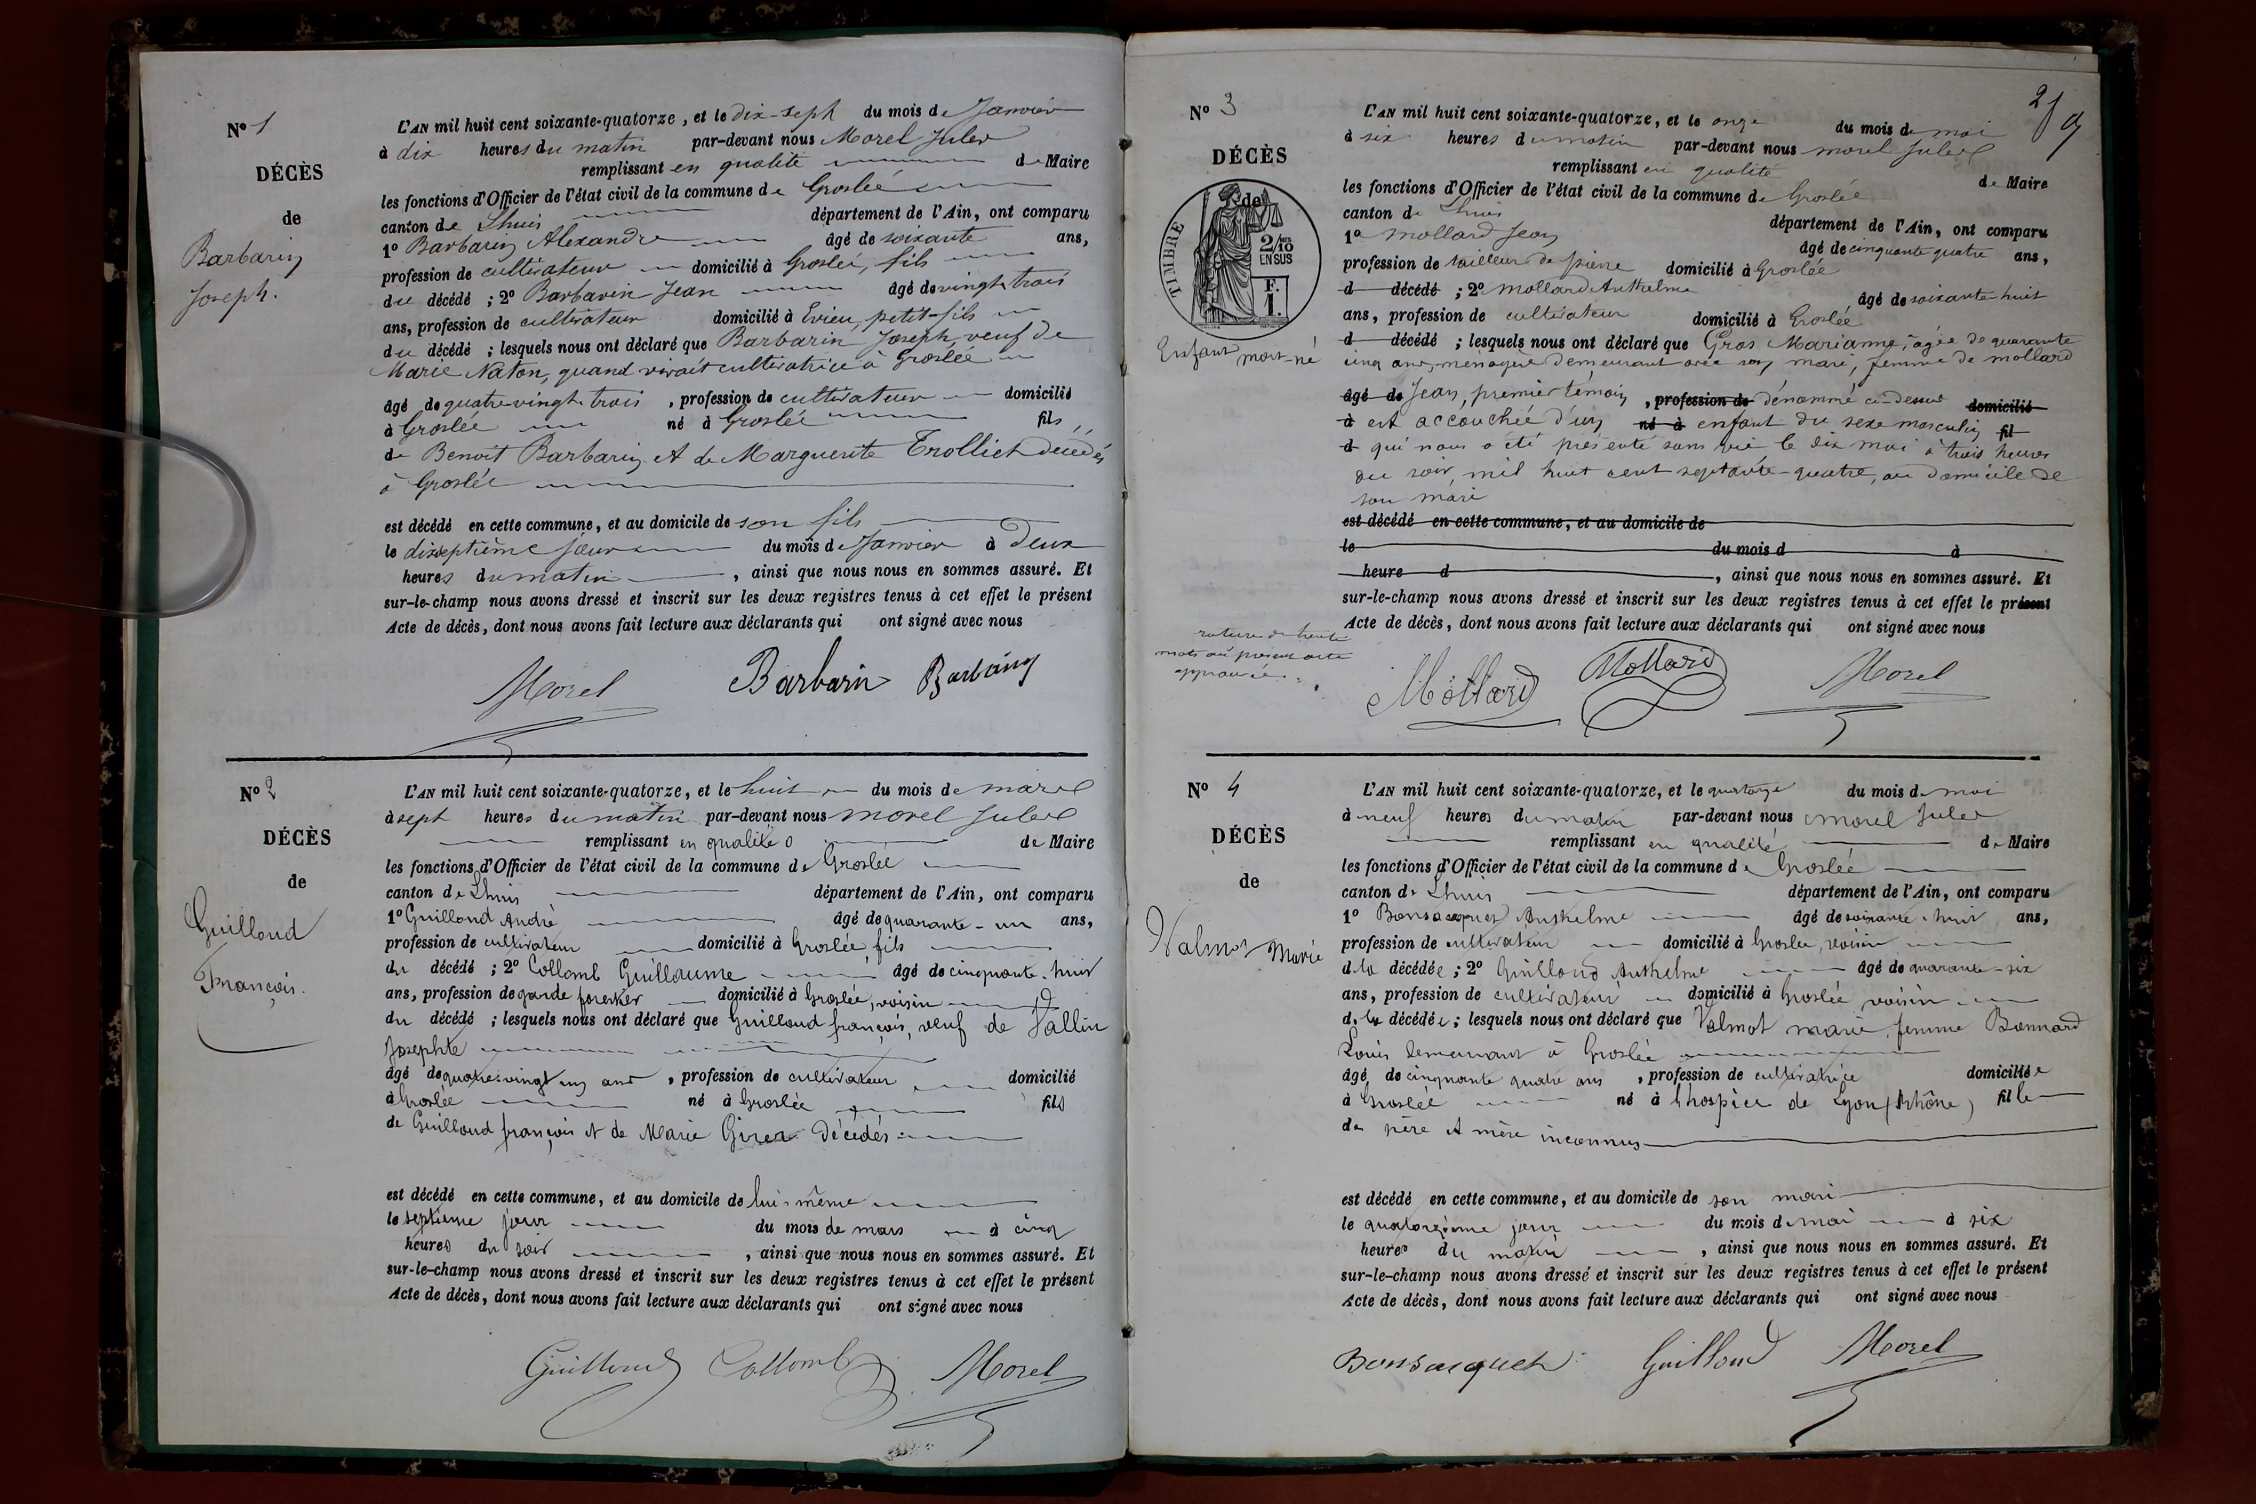 N° 1
DÉCÈS
de
Barbarin
Joseph.
L'AN mil huit cent soixante-quatorze, et le dix-sept du mois de Janvier
à dix heures du matin par-devant nous Morel Jules
remplissant en qualité de Maire
les fonctions d'Officier de l'état civil de la commune de Groslée
canton de Lhuis département de l'Ain, ont comparu
1° Barbarin Alexandre âgé de soixante ans,
profession de cultivateur domicilié à Groslée, fils
du décédé ; 2° Barbarin Jean âgé de vingt trois
ans, profession de cultivateur domicilié à Evieu, petit-fils
du décédé ; lesquels nous ont déclaré que Barbarin Joseph, veuf de
Marie Naton, quand vivait cultivatrice à Groslée
âgé de quatre vingt trois , profession de cultivateur domicilié
à Groslée né à Groslée fils
de Benoit Barbarin et de Marguerite Trolliet décédés
à Groslée
est décédé en cette commune, et au domicile de son fils
le dixseptième jour du mois de Janvier à deux
heures du matin , ainsi que nous nous en sommes assuré. Et
sur-le-champ nous avons dressé et inscrit sur les deux registres tenus à cet effet le présent
Acte de décès, dont nous avons fait lecture aux déclarants qui ont signé avec nous
Morel Barbarin Barbarin
N° 2
DÉCÈS
de
Guilloud
François.
L'AN mil huit cent soixante-quatorze, et le huit du mois de mars
à sept heures du matin par-devant nous Morel Jules
remplissant en qualité de Maire
les fonctions d'Officier de l'état civil de la commune de Groslée
canton de Lhuis département de l'Ain, ont comparu
1° Guilloud André âgé de quarante-un ans,
profession de cultivateur domicilié à Groslée, fils
du décédé ; 2° Collomb Guillaume âgé de cinquante-huit
ans, profession de garde forestier domicilié à Groslée, voisin
du décédé ; lesquels nous ont déclaré que Guilloud françois, veuf de Vallin
Josephte
âgé de quatre-vingt un ans , profession de cultivateur domicilié
à Groslée né à Groslée fils
de Guilloud françois et de Marie Girer décédés
est décédé en cette commune, et au domicile de lui-même
le septieme jour du mois de mars à cinq
heures du soir , ainsi que nous nous en sommes assuré. Et
sur-le-champ nous avons dressé et inscrit sur les deux registres tenus à cet effet le présent
Acte de décès, dont nous avons fait lecture aux déclarants qui ont signé avec nous
Guilloud Collomb Morel
2
N° 3
DÉCÈS
de
TIMBRE
2/10 EN SUS
F. 1.
Enfant mort-né
L'AN mil huit cent soixante-quatorze, et le onze du mois de mai
à six heures du matin par-devant nous Morel Jules
remplissant en qualité de Maire
les fonctions d'Officier de l'état civil de la commune de Groslée
canton de Lhuis département de l'Ain, ont comparu
1° Mollard Jean âgé de cinquante quatre ans,
profession de tailleur de pierre domicilié à Groslée
d décédé ; 2° Mollard Anthelme âgé de soixante-huit
ans, profession de cultivateur domicilié à Groslée
d décédé ; lesquels nous ont déclaré que Gros Marianne, âgée de quarante
cinq ans, ménagère demeurant avec son mari, femme de Mollard
âgé de Jean, premier témoin , profession de dénommé ci-dessus domicilié
à est accouchée d'un né à enfant du sexe masculin fil
d qui nous a été présenté sans vie le dix mai à trois heures
du soir, mil huit cent septante-quatre, au domicile de
son mari
est décédé en cette commune, et au domicile de
le du mois d à
heure d , ainsi que nous nous en sommes assuré. Et
sur-le-champ nous avons dressé et inscrit sur les deux registres tenus à cet effet le présent
Acte de décès, dont nous avons fait lecture aux déclarants qui ont signé avec nous
rature de trente
mots au présent acte
approuvée.
Mollard Mollard Morel
N° 4
DÉCÈS
de
Valmot Marie
L'AN mil huit cent soixante-quatorze, et le quatorze du mois de mai
à neuf heures du matin par-devant nous Morel Jules
remplissant en qualité de Maire
les fonctions d'Officier de l'état civil de la commune de Groslée
canton de Lhuis département de l'Ain, ont comparu
1° Bonsacquet Anthelme âgé de soixante-huit ans,
profession de cultivateur domicilié à Groslée, voisin
de la décédée ; 2° Guilloud Anthelme âgé de quarante-six
ans, profession de cultivateur domicilié à Groslée voisin
de la décédée ; lesquels nous ont déclaré que Valmot marie, femme Bonnard
Louis demeurant à Groslée
âgé de cinquante quatre ans , profession de cultivatrice domiciliée
à Groslée né à l'hospice de Lyon (Rhône) fille
de père et mère inconnus
est décédé en cette commune, et au domicile de son mari
le quatorzième jour du mois de mai à six
heures du matin , ainsi que nous nous en sommes assuré. Et
sur-le-champ nous avons dressé et inscrit sur les deux registres tenus à cet effet le présent
Acte de décès, dont nous avons fait lecture aux déclarants qui ont signé avec nous
Bonsacquet Guilloud Morel